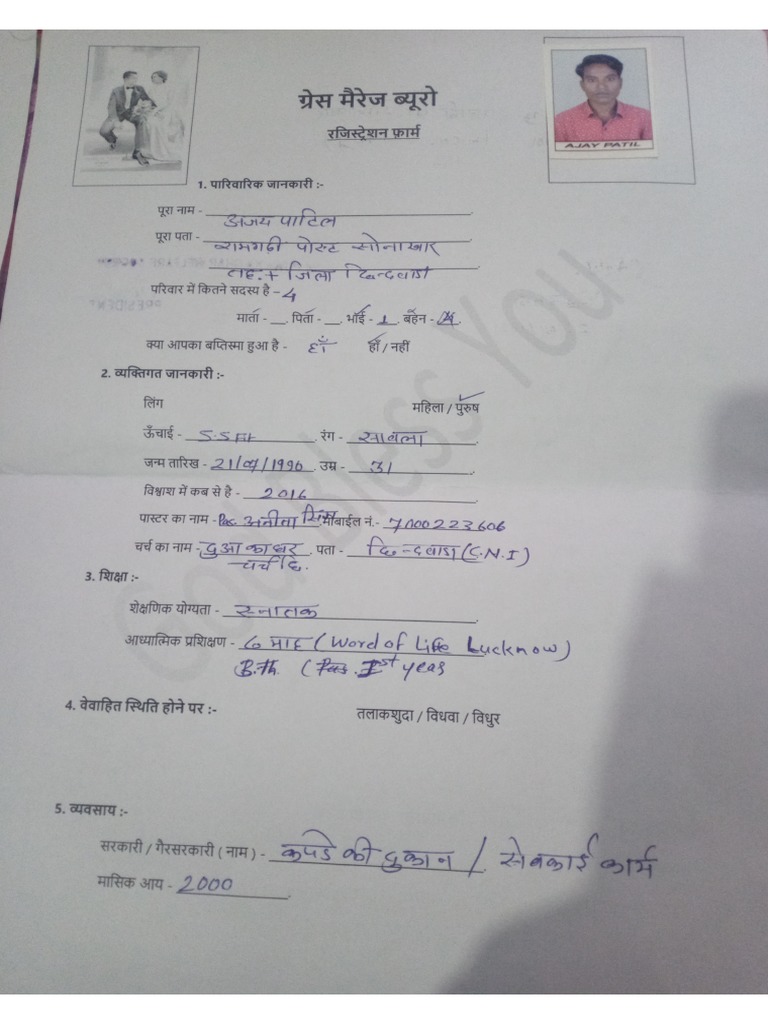 ग्रेस मैरेज ब्यूरो
रजिस्ट्रेशन फ़ार्म
AJAY PATIL
1. पारिवारिक जानकारी :-
पूरा नाम - अजय पाटिल
पूरा पता - पोस्ट सोनाखार
तह. + जिला छिन्दवाडा
परिवार में कितने सदस्य है - 4
माता - पिता - भाई - 1 बहन -
क्या आपका बप्तिस्मा हुआ है - हाँ हाँ / नहीं
2. व्यक्तिगत जानकारी :-
लिंग महिला / पुरुष
ऊँचाई - 5.5 FT रंग - सावला
जन्म तारिख - 21/07/1990 उम्र - 31
विश्वाश में कब से है - 2016
पास्टर का नाम - Pas. अनीता सिंग मोबाईल नं. - 7000223606
चर्च का नाम - दुआ का घर पता - छिन्दवाडा (C.N.I)
चर्च छि.
3. शिक्षा :-
शेक्षणिक योग्यता - स्नातक
आध्यात्मिक प्रशिक्षण - 6 माह (Word of Life Lucknow)
B.Th. ( 1st year
4. वेवाहित स्थिति होने पर :- तलाकशुदा / विधवा / विधुर
5. व्यवसाय :-
सरकारी / गैरसरकारी ( नाम ) - कपडे की दुकान / सेवकाई कार्य
मासिक आय - 2000
God Bless You